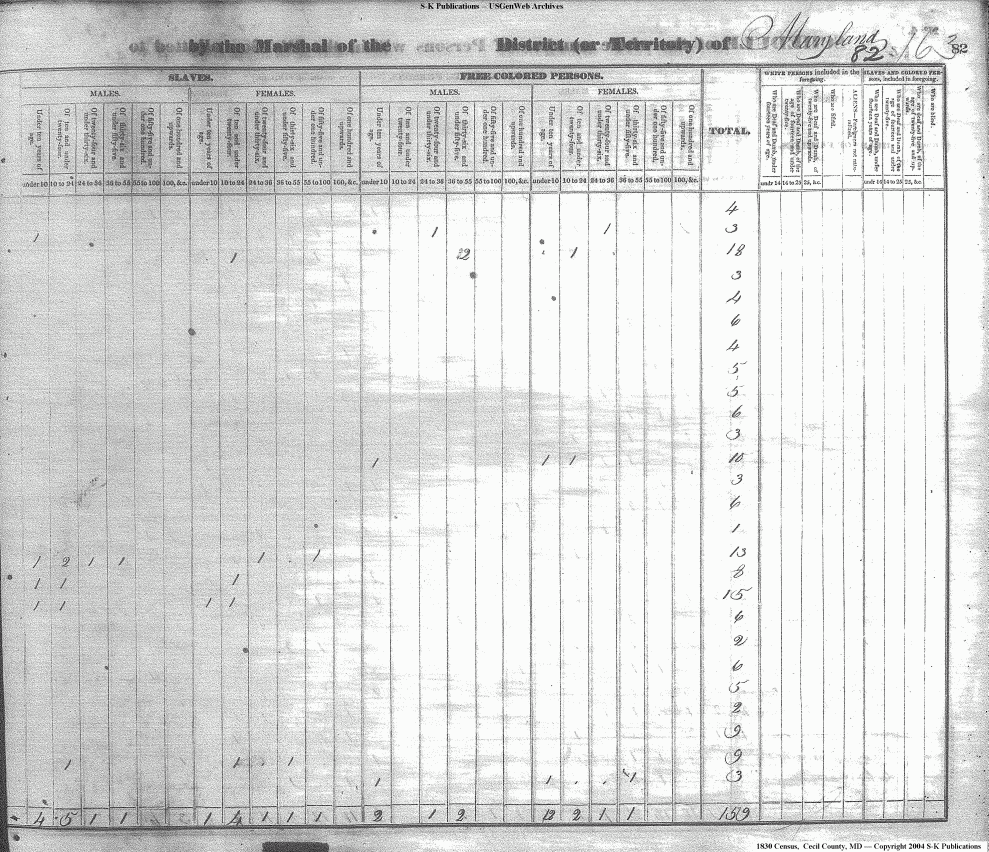 S-K Publications – USGenWeb Archives
by the Marshal of the District (or Territory) of Maryland
82 82
SLAVES. FREE COLORED PERSONS. TOTAL. WHITE PERSONS included in the foregoing. SLAVES AND COLORED PERSONS, included in foregoing.
MALES. FEMALES. MALES. FEMALES.
Under ten years of age. Of ten and under twenty-four. Of twenty-four and under thirty-six. Of thirty-six and under fifty-five. Of fifty-five and under one hundred. Of one hundred and upwards. Under ten years of age. Of ten and under twenty-four. Of twenty-four and under thirty-six. Of thirty-six and under fifty-five. Of fifty-five and under one hundred. Of one hundred and upwards. Under ten years of age. Of ten and under twenty-four. Of twenty-four and under thirty-six. Of thirty-six and under fifty-five. Of fifty-five and under one hundred. Of one hundred and upwards. Under ten years of age. Of ten and under twenty-four. Of twenty-four and under thirty-six. Of thirty-six and under fifty-five. Of fifty-five and under one hundred. Of one hundred and upwards. Who are Deaf and Dumb, under fourteen years of age. Who are Deaf and Dumb, of the age of fourteen and under twenty-five. Who are Deaf and Dumb, of twenty-five and upwards. Who are blind. ALIENS—Foreigners not naturalized. Who are Deaf and Dumb, under fourteen years of age. Who are Deaf and Dumb, of the age of fourteen and under twenty-five. Who are Deaf and Dumb, of the age of twenty-five and upwards. Who are blind.
under 10 10 to 24 24 to 36 36 to 55 55 to 100 100, &c. under 10 10 to 24 24 to 36 36 to 55 55 to 100 100, &c. under 10 10 to 24 24 to 36 36 to 55 55 to 100 100, &c. under 10 10 to 24 24 to 36 36 to 55 55 to 100 100, &c. undr 14 14 to 25 25, &c. undr 14 14 to 25 25, &c.
4
1 1 1 3
1 2 1 18
3
4
6
4
5
5
6
3
1 1 1 10
3
6
1
1 2 1 1 1 1 13
1 1 1 8
1 1 1 1 15
6
2
6
5
2
9
1 1 1 9
1 1 1 3
4 5 1 1 1 4 1 1 1 2 1 2 2 1 1 159
1830 Census, Cecil County, MD — Copyright 2004 S-K Publications